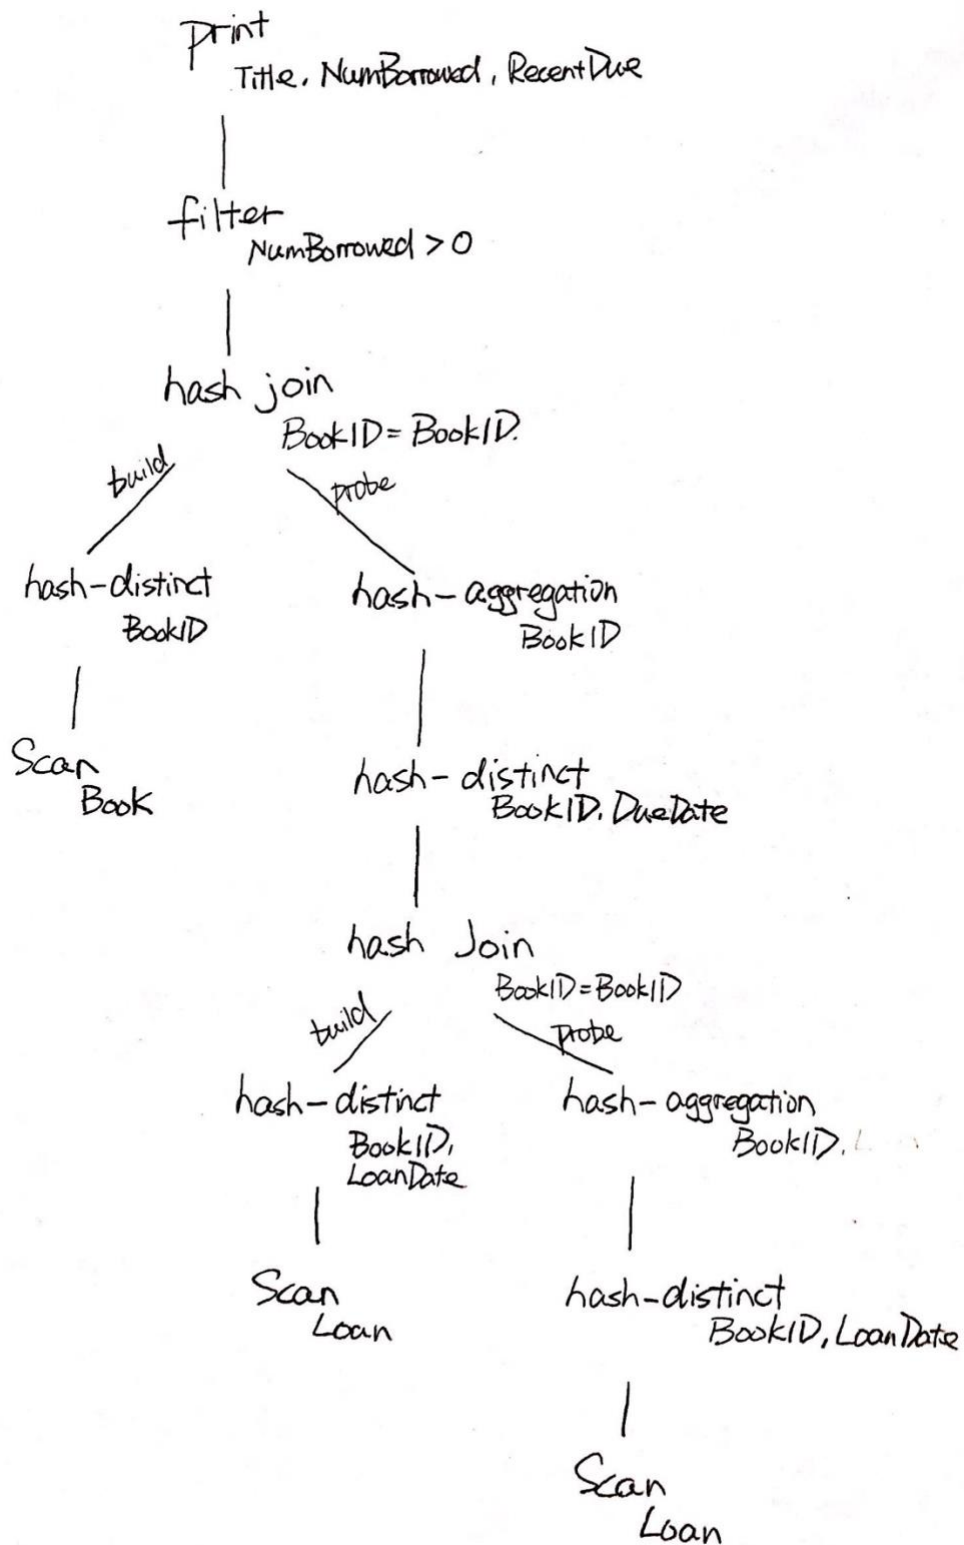 Print
Title, NumBorrowed, RecentDue
filter
NumBorrowed > 0
hash join
BookID = BookID.
build
probe
hash-distinct
BookID
hash-aggregation
BookID
Scan
Book
hash-distinct
BookID, DueDate
hash Join
BookID = BookID
build
probe
hash-distinct
BookID,
LoanDate
hash-aggregation
BookID.
Scan
Loan
hash-distinct
BookID, LoanDate
Scan
Loan